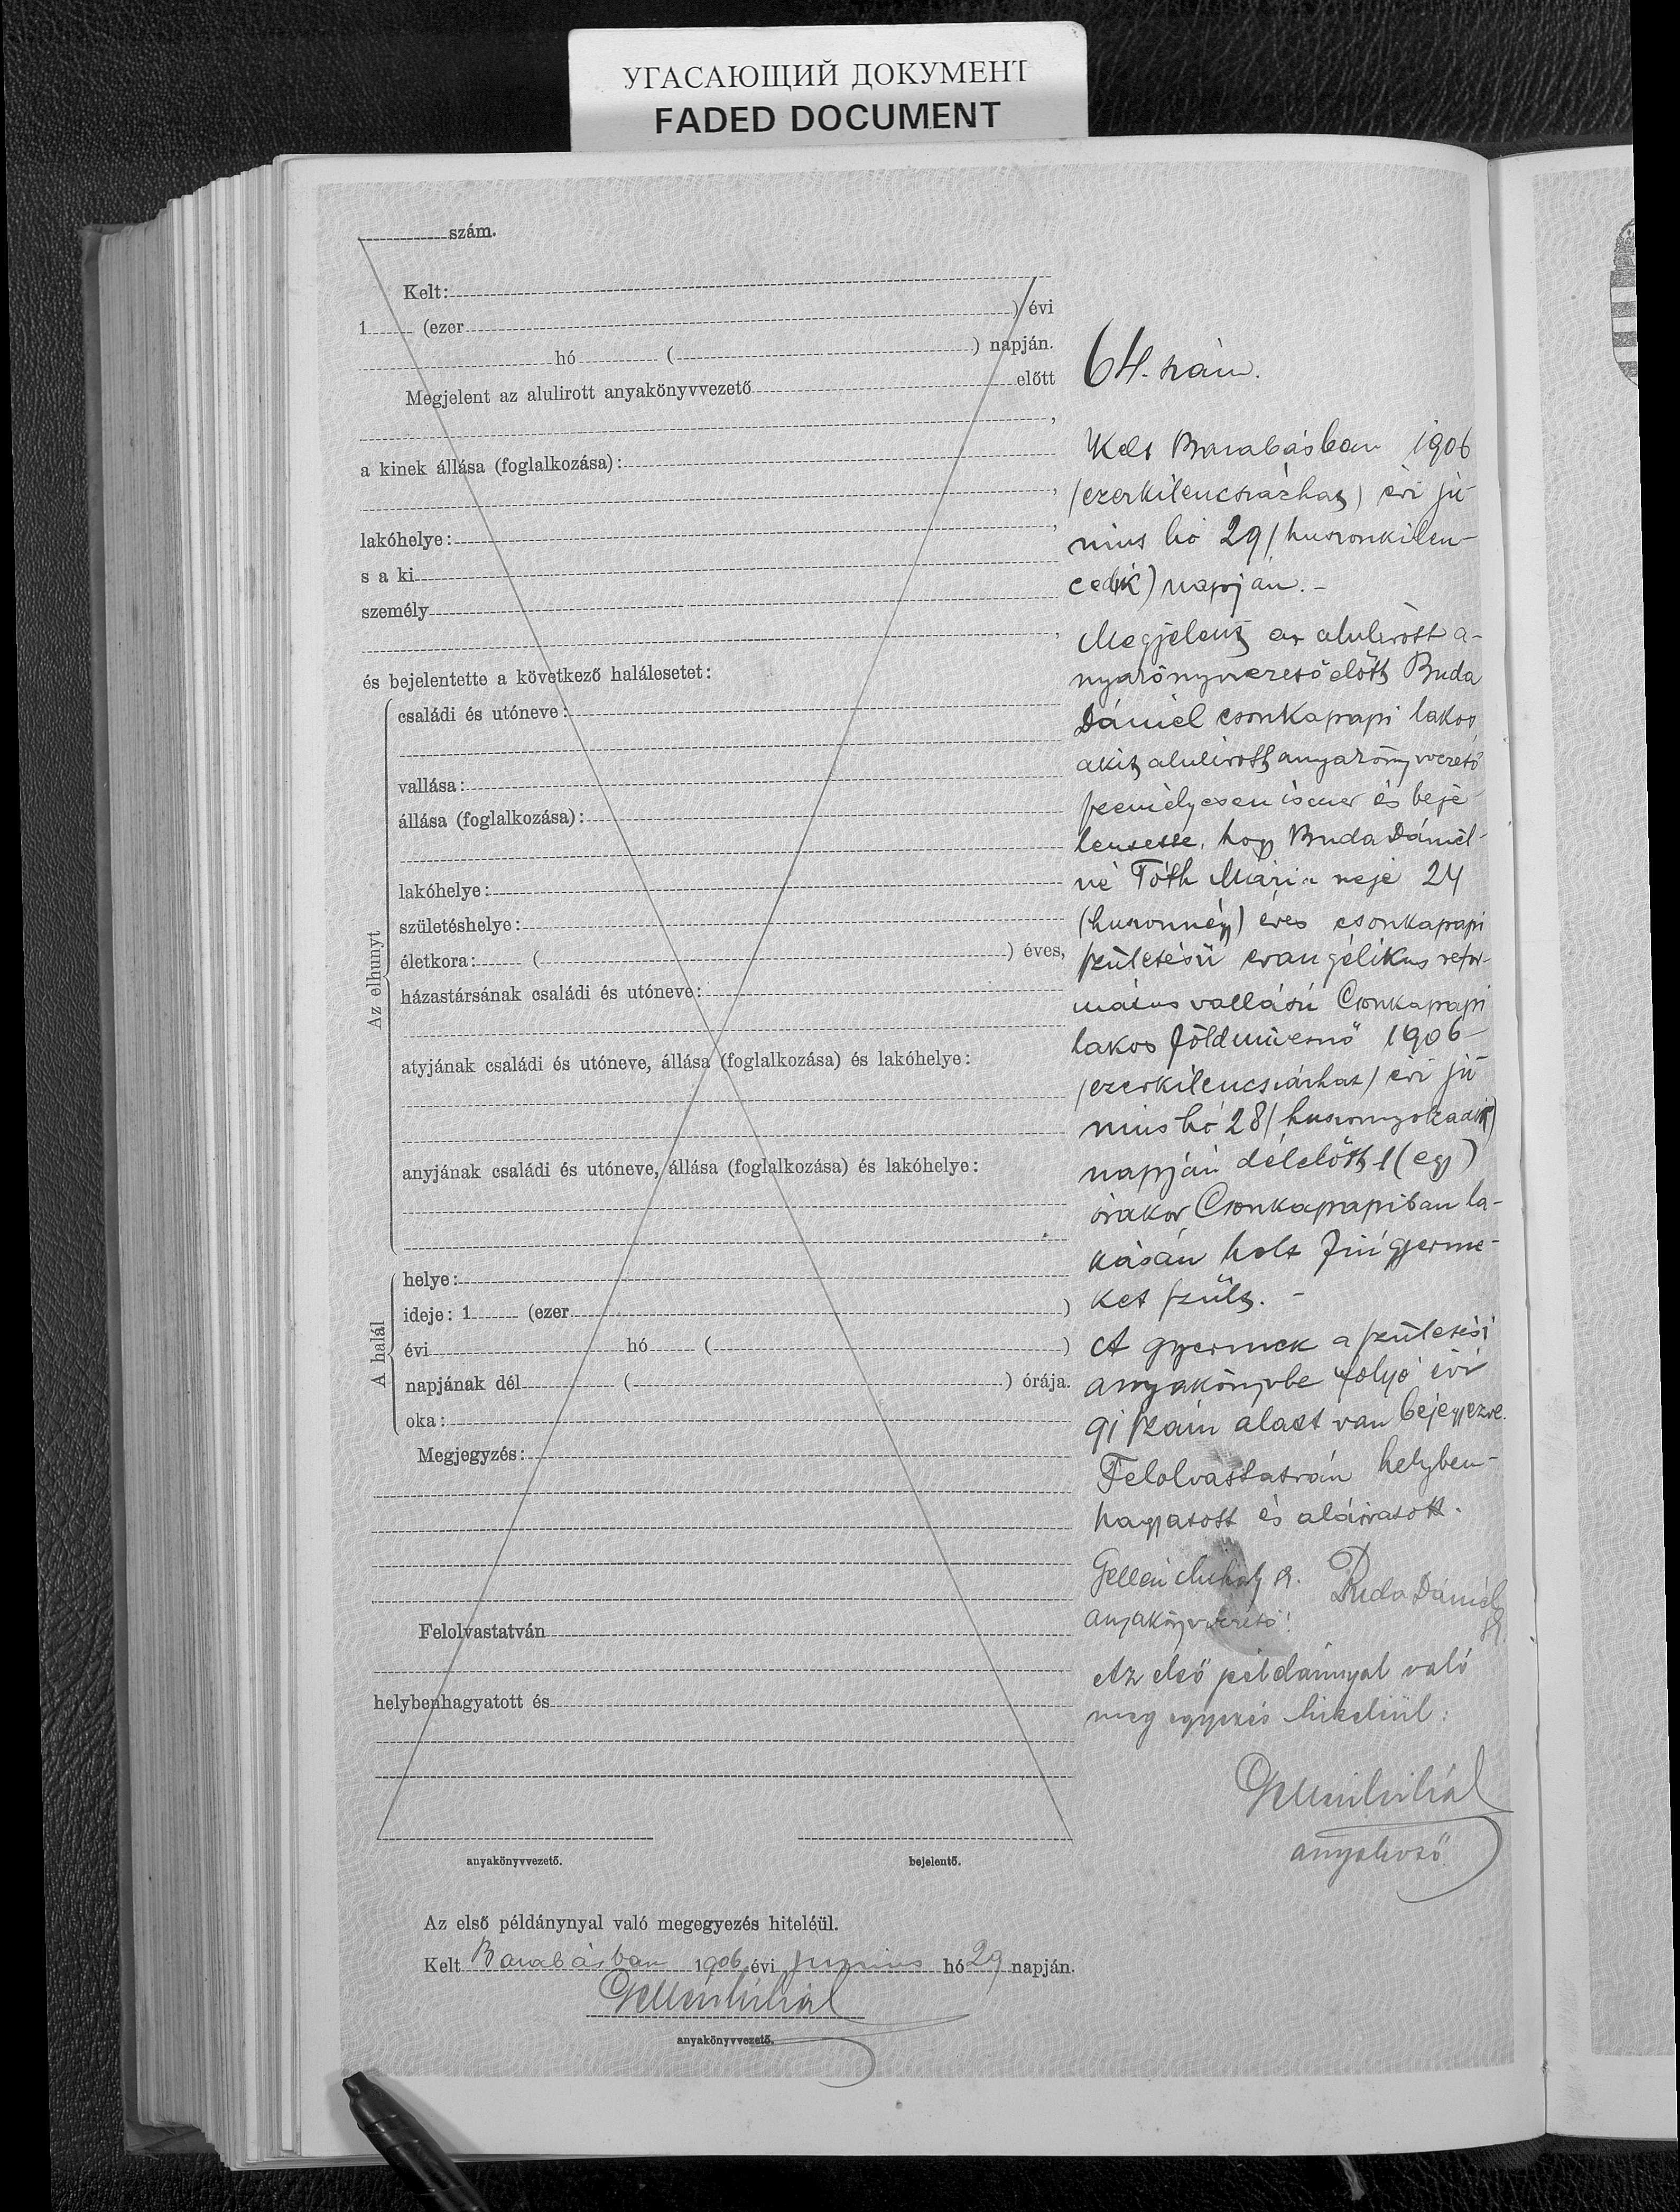 УГАСАЮЩИЙ ДОКУМЕНТ
FADED DOCUMENT
szám.
Kelt:
1 (ezer ) évi
hó ( ) napján.
Megjelent az alulirott anyakönyvvezető előtt
,
a kinek állása (foglalkozása):
,
lakóhelye: ,
s a ki
személy
,
és bejelentette a következő halálesetet:
Az elhunyt
családi és utóneve:
vallása:
állása (foglalkozása):
lakóhelye:
születéshelye:
életkora: ( ) éves,
házastársának családi és utóneve:
atyjának családi és utóneve, állása (foglalkozása) és lakóhelye:
anyjának családi és utóneve, állása (foglalkozása) és lakóhelye:
A halál
helye:
ideje: 1 (ezer )
évi hó ( )
napjának dél ( ) órája.
oka:
Megjegyzés:
Felolvastatván
helybenhagyatott és
anyakönyvvezető. bejelentő.
Az első példánynyal való megegyezés hiteléül.
Kelt Barabásban 1906 évi junius hó 29 napján.
Gellén Mihál
anyakönyvvezető.
64. szám.
Kelt Barabásban 1906
(ezerkilencszázhat) évi jú-
nius hó 29 (huszonkilen-
cedik) napján. -
Megjelent az alulirott a-
nyakönyvvezető előtt Buda
Dániel csonkapapi lakos,
akit alulirott anyakönyvvezető
személyesen ismer és beje-
lentette, hogy Buda Dániel-
né Tóth Mária neje 24
(huszonnégy) éves csonkapapi
születésü evangélikus refor-
mátus vallású Csonkapapi
lakos földmivesnő 1906
(ezerkilencszázhat) évi jú-
nius hó 28 (huszonnyolcadik)
napján délelőtt 1 (egy)
órakor Csonkapapiban la-
kásán holt fiúgyerme-
ket szült. -
A gyermek a születési
anyakönyvbe folyó évi
91 szám alatt van bejegyezve.
Felolvastatván helyben-
hagyatott és aláiratott.
Gellén Mihály sk. Buda Dániel
anyakönyvvezető sk.
Az első példánnyal való
meg egyezés hiteléül:
Gellén Mihál
anyakvző